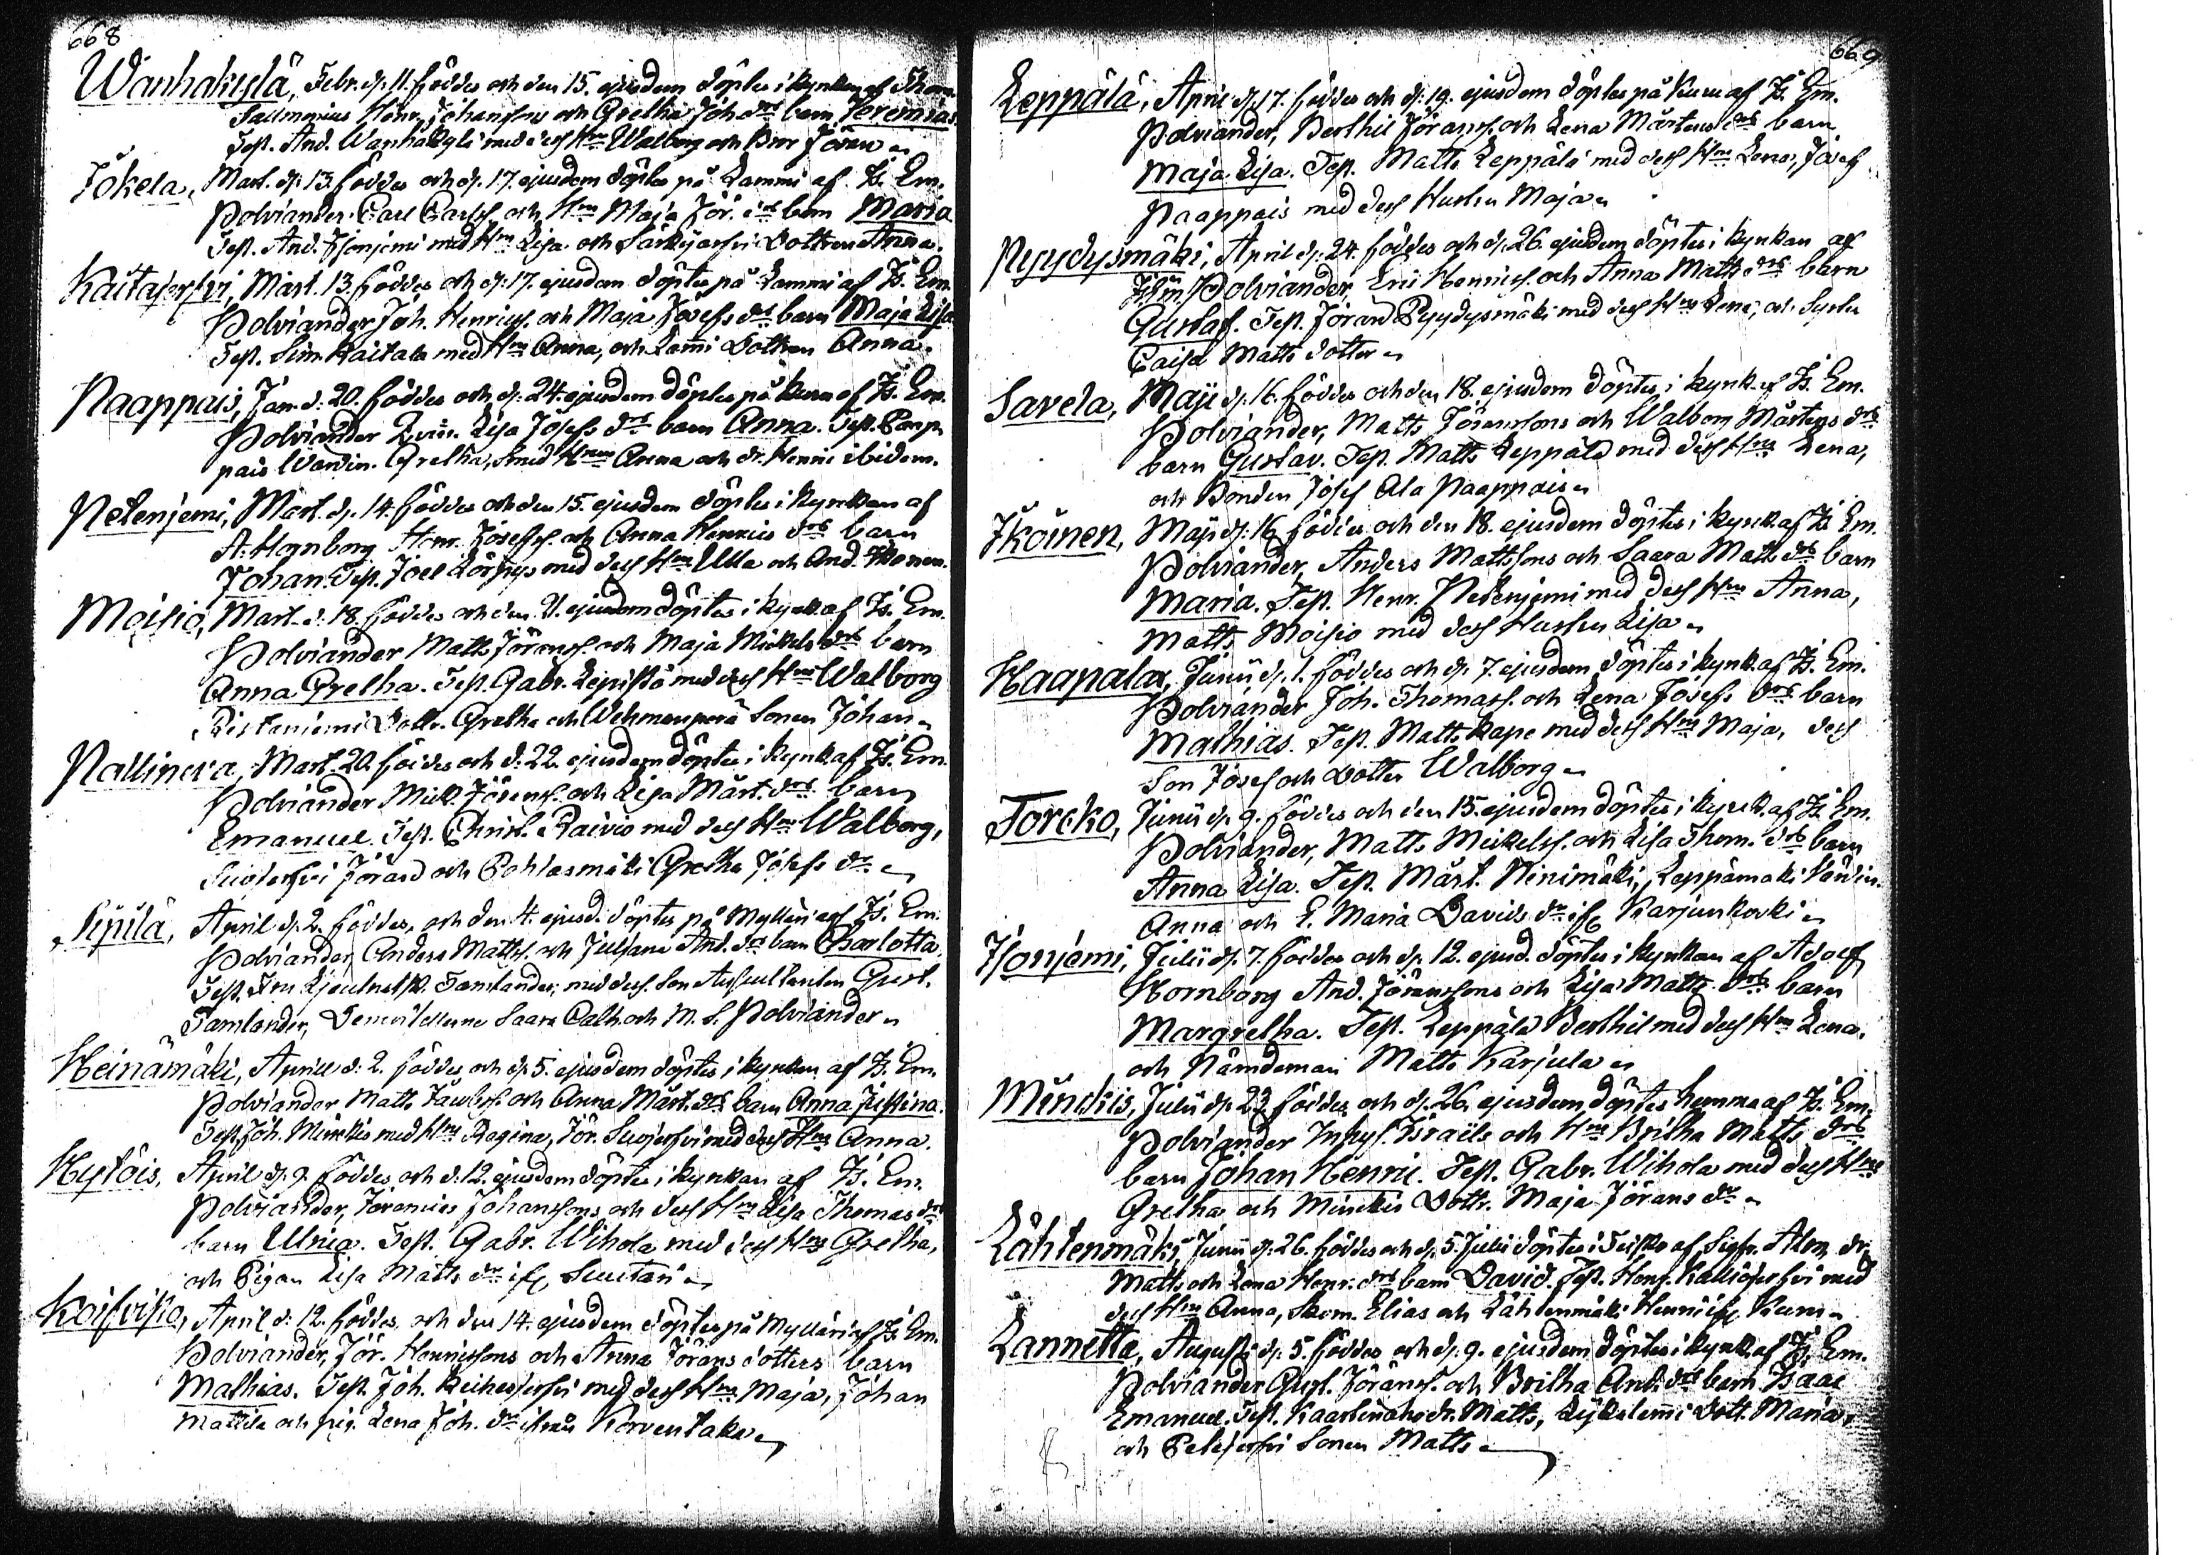 668
Wanhakylä, Febr. d. 11. föddes och den 15. ejusdem döptes i kyrkan af Thom.
Sallmenius Henr. Johanssons och Gretha Joh. drs barn Jeremias.
Test. And. Wanhakylä med dess Hru Walborg och Bror Jöran
Jokela, Mart. d. 13. föddes och d. 17. ejusdem döptes på Lammi af Is. Em.
Polviander. Carl Carlss. och Hru Maja Jör. drs barn Maria
Test. And. Isoniemi med Hru Lisa och Särkijerfvi Dottren Anna.
Kaitajerfvi, Mart. 13. föddes och d. 17. ejusdem döptes på Lammi af Is. Em.
Polviander Joh. Henricss. och Maja Josefs drs barn Maja Lisa
Test. Sim. Kaitala med Hru Anna, och Lam̄i Dottren Anna.
Paappais, Jan. d. 20. föddes och d. 24. ejusdem döptes på Kuru af Is. Em.
Polviander Qvin. Lisa Josefs drs barn Anna. Test. Paap-
pais Wärdin. Gretha, smed Hrun Anna och dr. Henric ibidem.
Petenjemi, Mart. d. 14. föddes och den 15. ejusdem döptes i kyrkan af
A. Hornborg Henr. Josefss. och Anna Henrics drs barn
Johan. Test. Joel Lörpys med dess Hru Ulla och And. Ikoinen.
Moisio, Mart. d. 18. föddes och den 21. ejusdem döptes i kyrk. af Is. Em.
Polviander Matts Jöranss. och Maja Mickels drs barn
Anna Gretha. Test. Gabr. Lepistö med dess Hru Walborg
Ristaniemi Dottr. Gretha och Wehmenperä Sonen Johan
Pallinera, Mart. 20. föddes och d. 22. ejusdem döptes i kyrk. af Is. Em.
Polviander Mick. Jöranss. och Lisa Märt. drs barn
Emanuel. Test. Christ. Raivio med dess Hru Walborg,
Suojerfvi Jöran och Pohlasmäki Gretha Josefs dr
Sipilä, April d. 2. föddes, och den 4. ejusd. döptes på Mylläri af Is. Em.
Polviander, Anders Mattss. och Juliana And. dr barn Charlotta.
Test. Hru Lieutnatsk. Tamlander, med dess Son Auscultanten Gust.
Tamlander, Demoisellerne Saara Cath. och M. S. Polviander
Heinämäki, Aprill d. 2. föddes och d. 5. ejusdem döptes i kyrkan af Is. Em.
Polviander Matts Pawlss. och Anna Märt. drs barn Anna Justina.
Test. Joh. Minckis med Hru Regina, Jör. Suojerfvi med dess Hru Anna.
Hystöis, April d. 9. föddes och d. 12. ejusdem döptes i kyrkan af Is. Em.
Polviander, Jeremias Johanssons och dess Hru Lisa Thomas drs
barn Ulrica. Test. Gabr. Wihola med dess Hru Gretha,
och Pigan Lisa Matts dr ifr.
Koifvisto, April d. 12. föddes och den 14. ejusdem döptes på Mylläri af Is. Em.
Polviander, Jör. Henrissons och Anna Jörans dotters barn
Mathias. Test. Joh. Keihesjerfvi med dess Hru Maja, Johan
Mattila och pig. Lena Joh. dr ifrån Korventaka
669
Leppälä, April d. 17. föddes och d. 19. ejusdem döptes på Kuru af Is. Em.
Polviander, Berthil Jöranss. och Lena Mårtens drs barn
Maja Lisa. Test. Matts Leppälä med dess Hru Lena, Josef
Paappais med dess Hustru Maja
Pyydysmäki, April d. 24. föddes och d. 26. ejusdem döptes i kyrkan af
Is. Em. Polviander, Eric Henricss. och Anna Matts drs barn
Gustaf. Test. Jöran Pyydysmäki med dess Hru Lena, och Syster
Caisa Matts dotter
Savela, Maji d. 16. föddes och den 18. ejusdem döptes i kyrk. af Is. Em.
Polviander, Matts Jöranssons och Walborg Mårtens drs
barn Gustav. Test. Matts Leppälä med dess Hru Lena,
och Bonden Josef Ala Paappais
Ikoinen, Maji d. 16. föddes och den 18. ejusdem döptes i kyrk. af Is. Em.
Polviander, Anders Mattssons och Saara Matts drs barn
Maria. Test. Henr. Petenjemi med dess Hru Anna,
Matts Moisio med dess Hustru Lisa
Haapala, Junii d. 1. föddes och d. 7. ejusdem döptes i kyrk. af Is. Em.
Polviander Joh. Thomass. och Lena Josefs drs barn
Mathias. Test. Matts Kape med dess Hru Maja, dess
Son Josef och Dotter Walborg
Toreko, Junii d. 9. föddes och den 15. ejusdem döptes i kyrk. af Is. Em.
Polviander, Matts Mickelss. och Lisa Thom. drs barn
Anna Lisa. Test. Märt. Ninimäki, Leppämäki Värdin.
Anna och E. Maria Davids dr ifr. Karjunkorki
Isonjemi, Julii d. 7. föddes och d. 12. ejusd. döptes i kyrkan af Adolf
Hornborg And. Jöranssons och Lisa Matts drs barn
Margretha. Test. Leppälä Berthil med dess Hru Lena,
och Nämdeman Matts Karjula
Minckis, Julii d. 23. föddes och d. 26. ejusdem döptes hemma af Is. Em.
Polviander Inhys. Israels och Hru Britha Matts drs
barn Johan Henric. Test. Gabr. Wihola med dess Hru
Gretha och Minckis Dottr. Maja Jörans dr
Lähtenmäki, Junii d. 26. föddes och d. 5. Julii döptes i Teisko af Sigfr. Alm, dr.
Matts och Lena Henr. drs barn David. Test. Henr. Kallojerfvi med
dess Hru Anna, Skom. Elias och Lähtenmäki Henric ifr. Kuru
Lannetta, Augusti d. 5. föddes och d. 9. ejusdem döptes i kyrk. af Is. Em.
Polviander Gust. Jöranss. och Britha And. drs barn Isaac
Emanuel. Test. dr. Matts, Dott. Maria,
och Peltjerfvi Sonen Matts